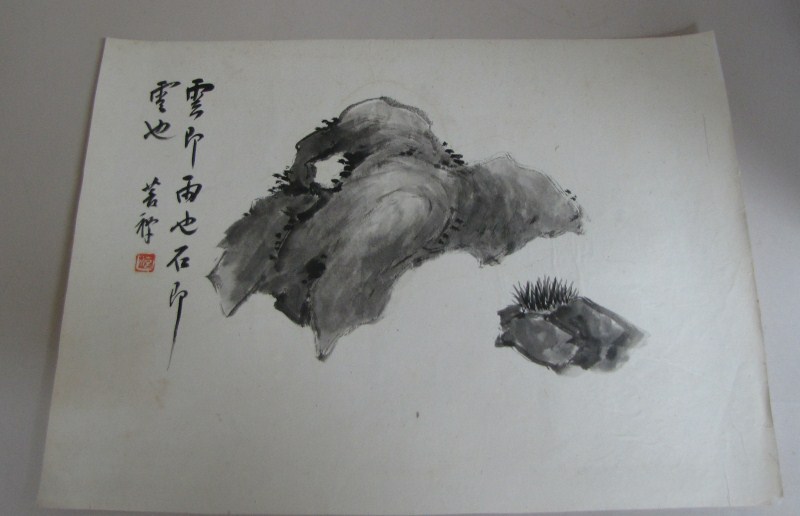 雲即雨也石即
雲也
苦禅